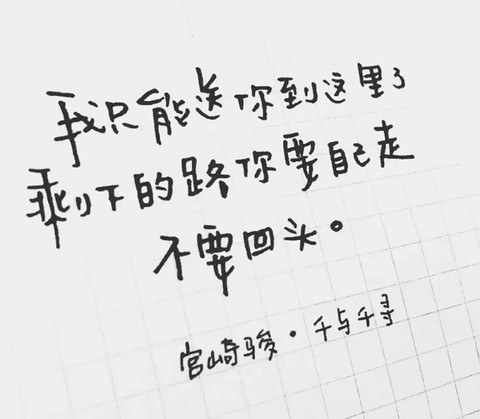 我只能送你到这里了
剩下的路你要自己走
不要回头。
宫崎骏·千与千寻